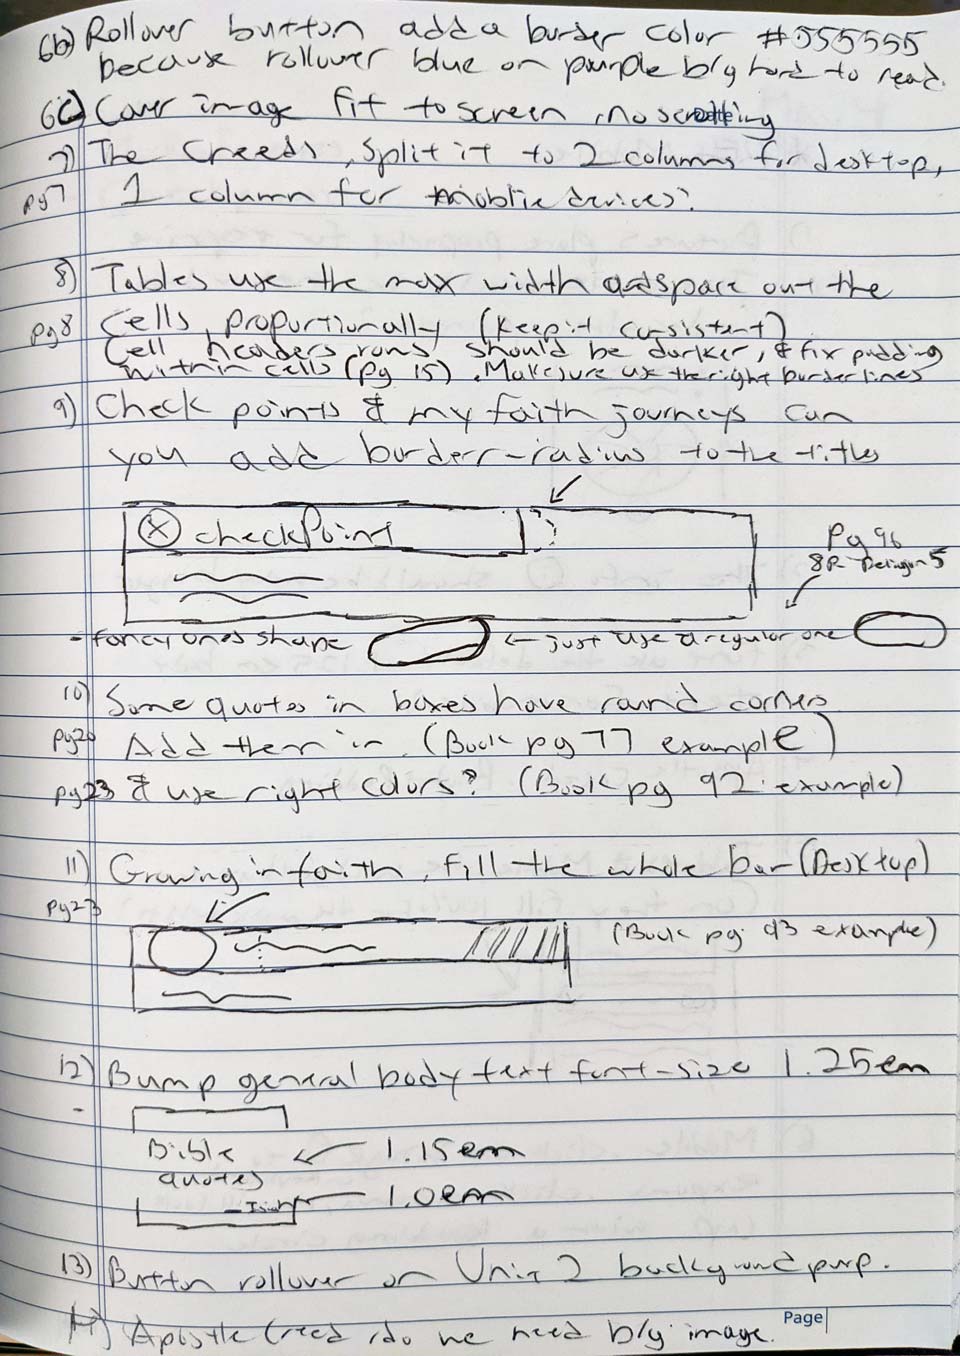 6b) Rollover button add a border color #555555
because rollover blue on purple b/g hard to read.
6c) Cover image fit to screen, no scrolling
7) The Creeds, Split it to 2 columns for desktop,
pg7 1 column for mobile devices?
8) Tables use the max width and space out the
pg8 cells, proportionally (keep it consistent)
Cell headers rows, should be darker, & fix padding
within cells (pg 15). Make sure use the right border lines
9) Check points & my faith journeys can
you add border-radius to the titles
X checkPoint
Pg 96
8R Religion 5
- fancy ones shape ← just use a regular one
10) Some quotes in boxes have round corners
pg20 Add them in. (Book pg 77 example)
pg23 & use right colors? (Book pg 92 example)
11) Growing in faith, fill the whole bar (Desktop)
pg23
(Book pg 93 example)
12) Bump general body text font-size 1.25em
-
Bible ← 1.15em
quotes
1.0em
13) Button rollover on Unit 2 background purp.
14) Apostle Creed, do we need b/g image.
Page